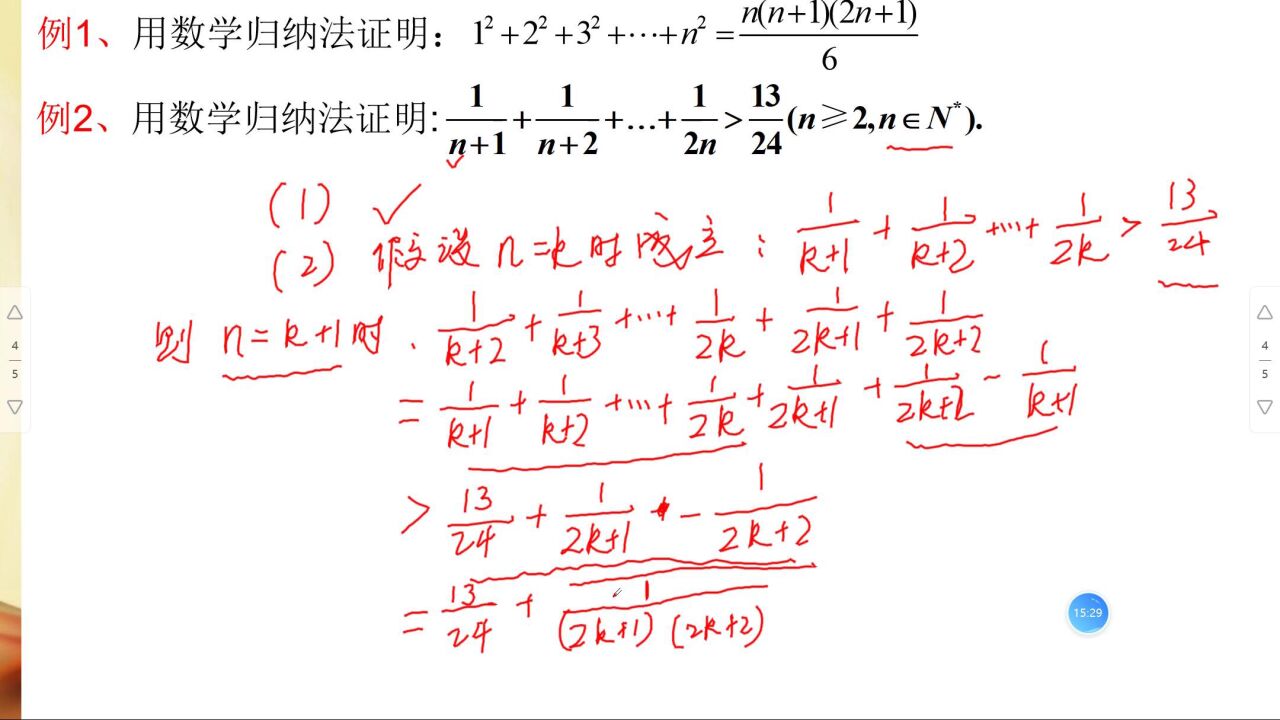 例1、用数学归纳法证明：1²+2²+3²+⋯+n²=n(n+1)(2n+1)/6
例2、用数学归纳法证明:1/(n+1)+1/(n+2)+…+1/(2n)>13/24(n≥2,n∈N*).
(1) ✓
(2) 假设n=k时成立：1/(k+1)+1/(k+2)+⋯+1/(2k)>13/24
则 n=k+1时. 1/(k+2)+1/(k+3)+⋯+1/(2k)+1/(2k+1)+1/(2k+2)
=1/(k+1)+1/(k+2)+⋯+1/(2k)+1/(2k+1)+1/(2k+2)-1/(k+1)
>13/24+1/(2k+1)-1/(2k+2)
=13/24+1/((2k+1)(2k+2))
4
5
4
5
15:29